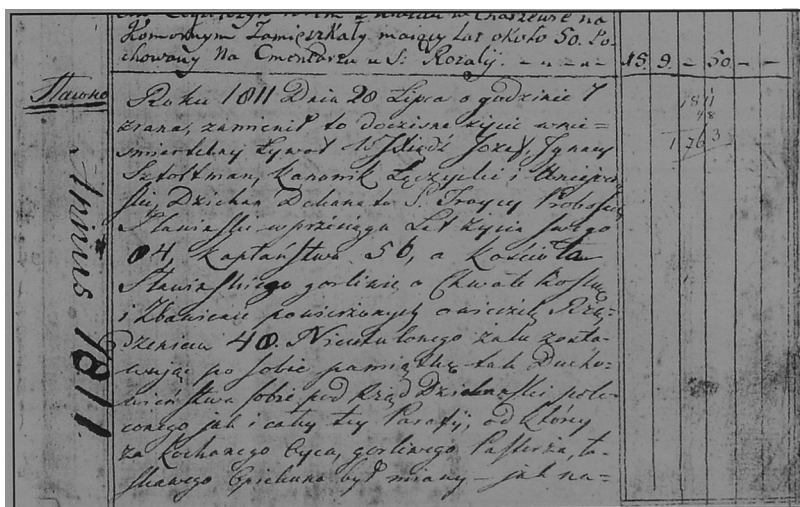 Komornym Zamieszkały maiący lat około 50. Po-
chowany Na Cmentarzu u S. Rozalij. - „ - „ -
15. 9. - 50. - -
Stawno
Annus 1811
Roku 1811 Dnia 28 Lipca o godzinie 7
zrana, zamienił to doczesne życie w nie=
śmiertelny żywot Jozef, Ignacy
Sztoltman, Kanonik Łęczycki i
ski, Dziekan Dekanatu S. Troycy Proboszcz
Stawiński w przeciągu Lat życia swego
84, Kapłaństwa 56, a Kościoła
Stawińskiego gorliwie o Chwałe Boską
i Zbawienie powierzonych owieczek Rzą=
dzeniu 48. Nieutulonego żalu zosta=
wując po sobie pamiątkę tak Ducho=
wieństwa sobie pod Rząd Dziekański pole=
conego jak i całey tey Parafij, od ktôry
za kochanego Oyca, gorliwego Pasterza, ła=
skawego Opiekuna był miany - jak na=
1811
48
1763